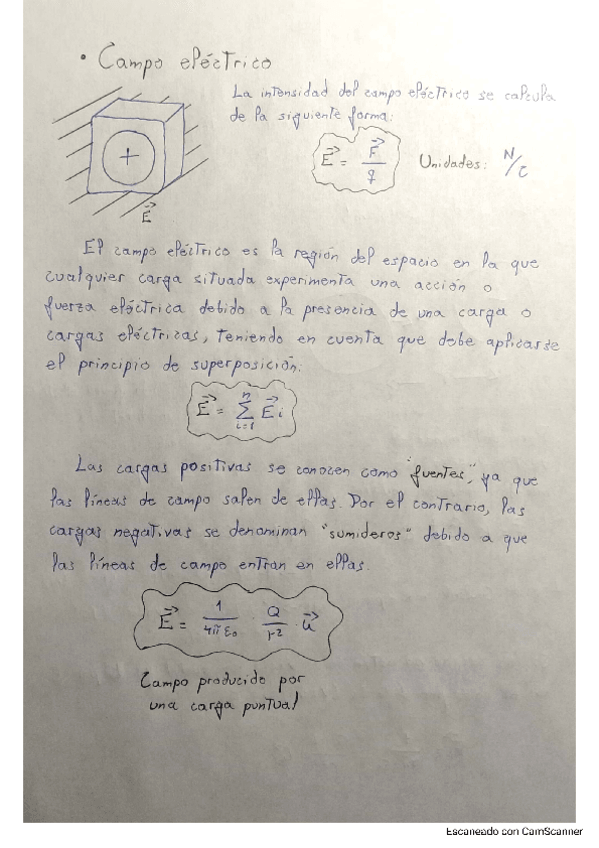 • Campo eléctrico
La intensidad del campo eléctrico se calcula
de la siguiente forma:
E⃗ = F⃗ / q
Unidades: N/C
+
E⃗
El campo eléctrico es la región del espacio en la que
cualquier carga situada experimenta una acción o
fuerza eléctrica debido a la presencia de una carga o
cargas eléctricas, teniendo en cuenta que debe aplicarse
el principio de superposición:
E⃗ = ∑ⁿᵢ₌₁ E⃗i
Las cargas positivas se conocen como "fuentes", ya que
las líneas de campo salen de ellas. Por el contrario, las
cargas negativas se denominan "sumideros" debido a que
las líneas de campo entran en ellas.
E⃗ = 1/4πε₀ · Q/r² · u⃗
Campo producido por
una carga puntual
Escaneado con CamScanner